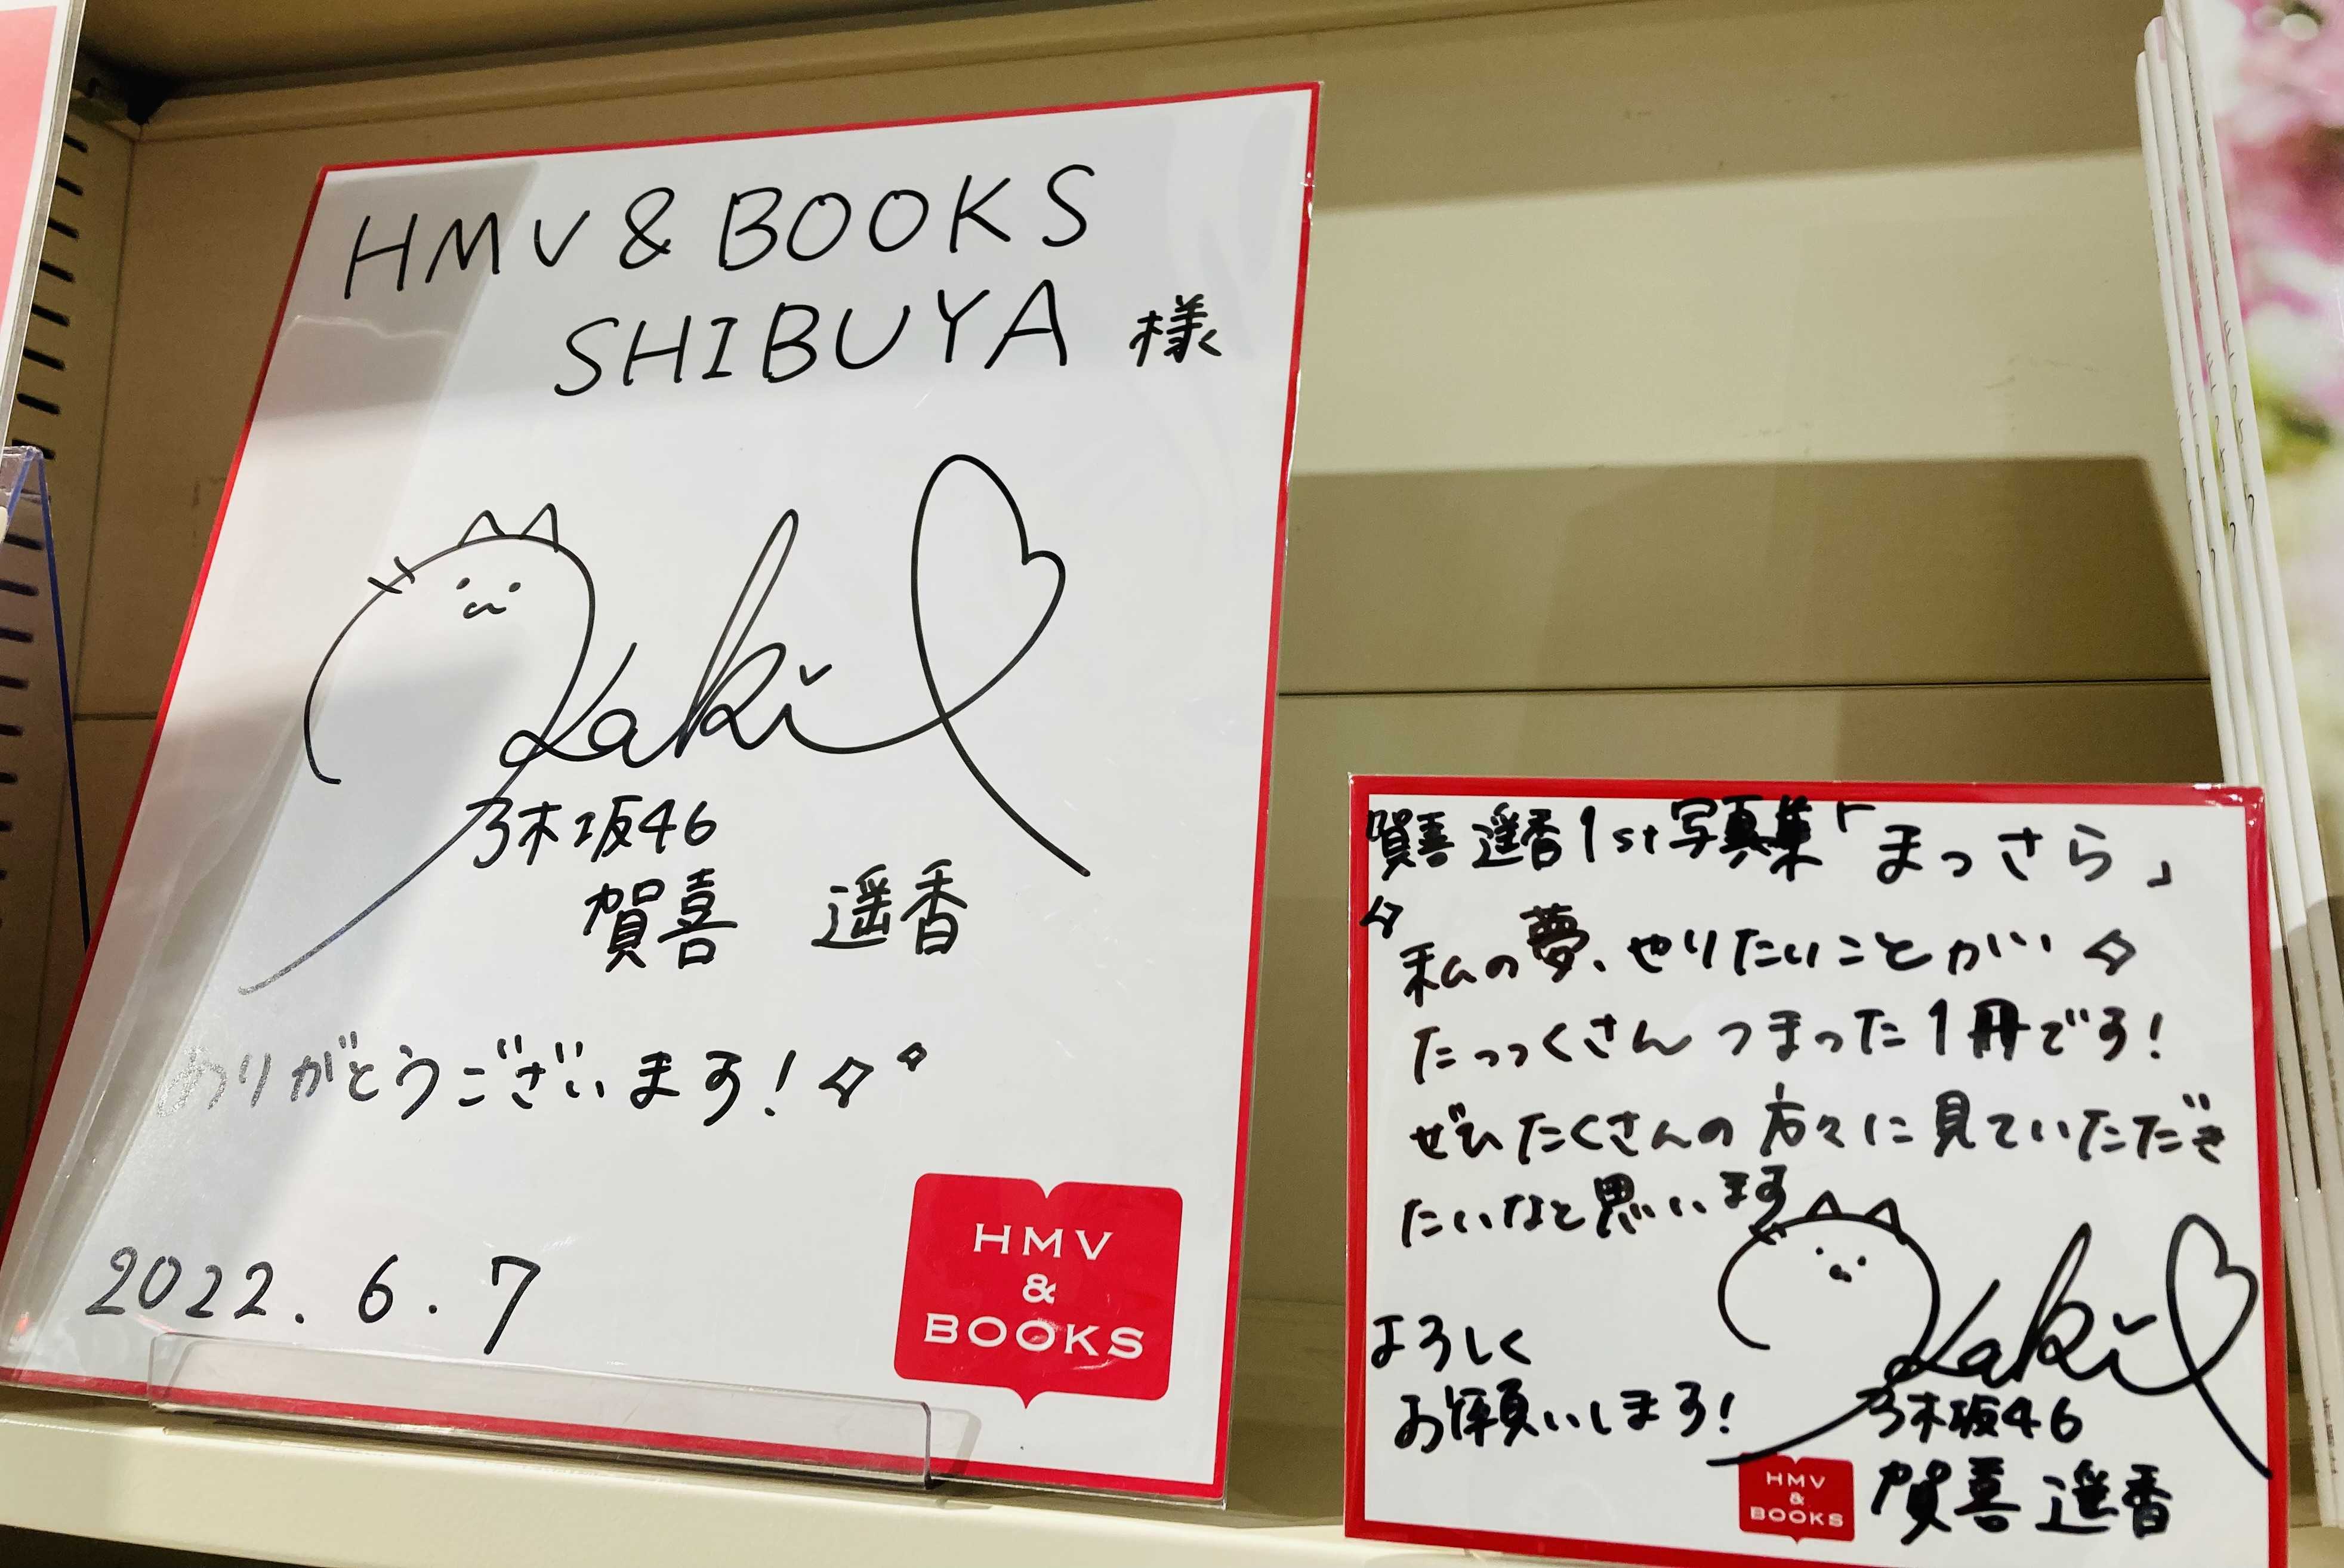 HMV & BOOKS
SHIBUYA 様
Kaki
乃木坂46
賀喜 遥香
ありがとうございます!
2022.6.7
HMV
&
BOOKS
賀喜 遥香1st写真集「まっさら」
私の夢、やりたいことがい
たっっくさんつまった1冊です!
ぜひたくさんの方々に見ていただき
たいなと思います
よろしく
お願いします!
Kaki
乃木坂46
賀喜 遥香
HMV
&
BOOKS